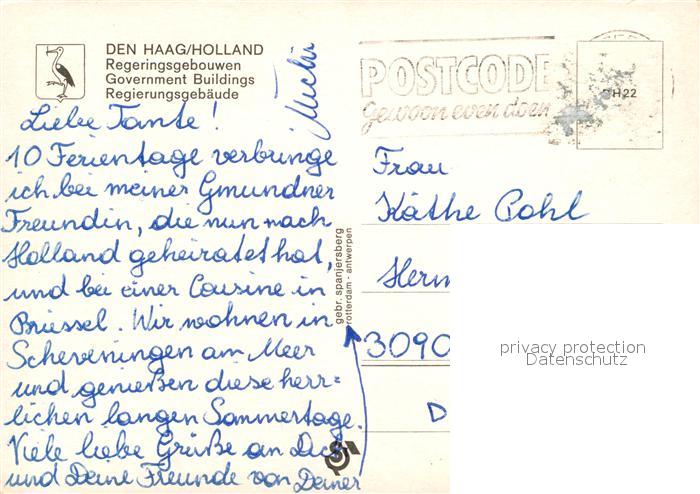 DEN HAAG/HOLLAND
Regeringsgebouwen
Government Buildings
Regierungsgebäude
Liebe Tante!
10 Ferientage verbringe
ich bei meiner Gmundner
Freundin, die nun nach
Holland geheiratet hat,
und bei einer Cousine in
Brüssel. Wir wohnen in
Scheveningen am Meer
und genießen diese herr=
lichen langen Sommertage.
Viele liebe Grüße an Dich
und Deine Freunde von Deiner
Michi
gebr. spanjersberg
rotterdam - antwerpen
POSTCODE
gewoon even doen
H22
Frau
Käthe Pohl
Herm
3090
D
privacy protection
Datenschutz